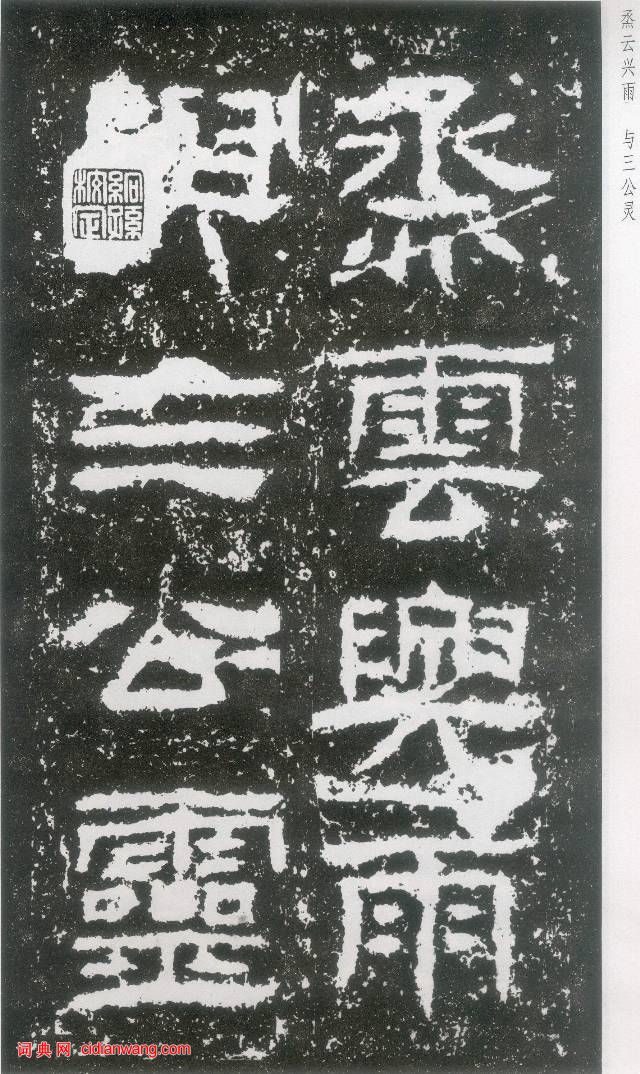 烝云兴雨 与三公灵
烝雲興雨
三公靈
絅孫
校正
词典网：cidianwang.com